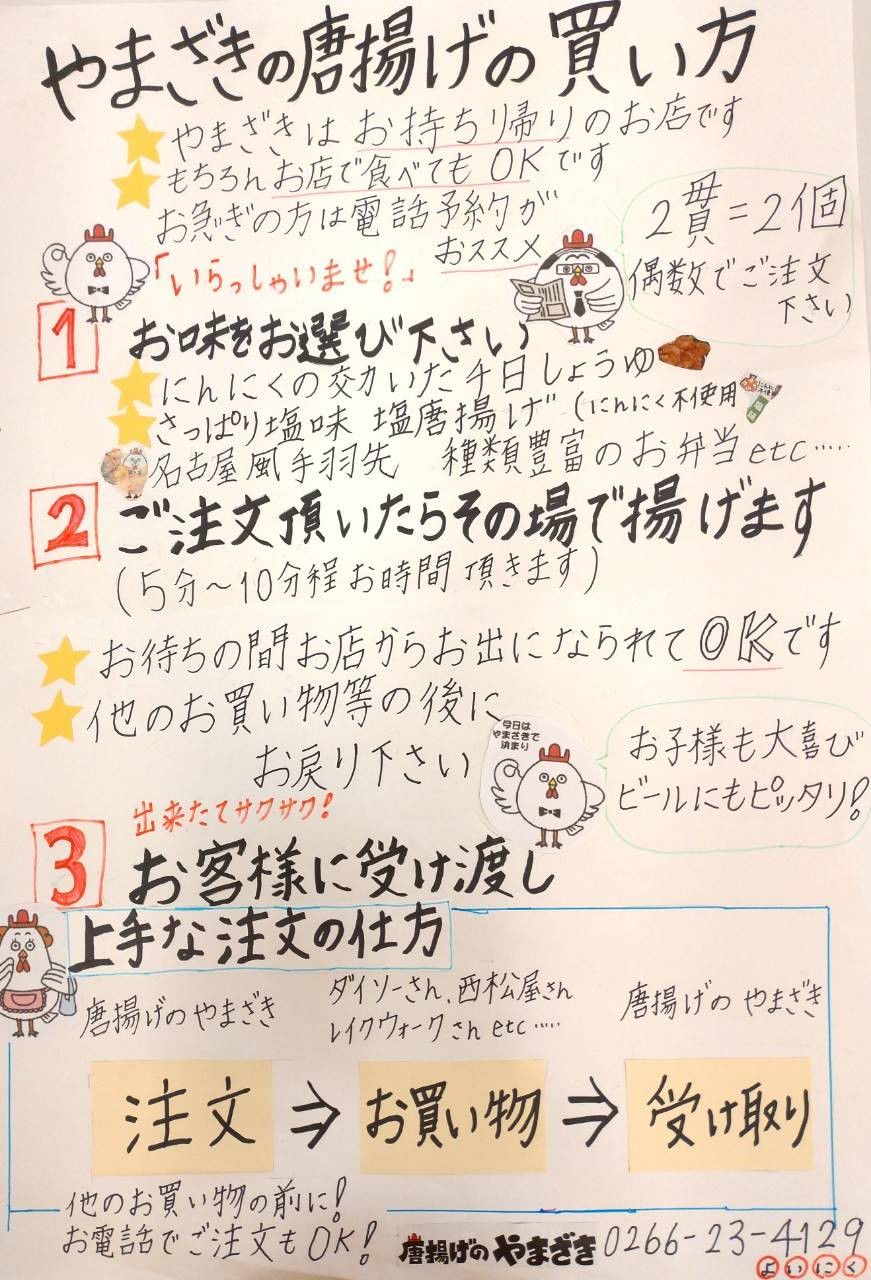 やまざきの唐揚げの買い方
やまざきはお持ち帰りのお店です
もちろんお店で食べてもOKです
お急ぎの方は電話予約が
おススメ
2貫=2個
偶数でご注文
下さい
「いらっしゃいませ!」
1 お味をお選び下さい
にんにくの効いた千日しょうゆ
さっぱり塩味 塩唐揚げ (にんにく不使用
名古屋風手羽先 種類豊富のお弁当etc……
2 ご注文頂いたらその場で揚げます
(5分〜10分程お時間頂きます)
お待ちの間お店からお出になられてOKです
他のお買い物等の後に
お戻り下さい
今日は
やまざきで
決まり
お子様も大喜び
ビールにもピッタリ!
出来たてサクサク!
3 お客様に受け渡し
上手な注文の仕方
唐揚げのやまざき
ダイソーさん、西松屋さん
レイクウォークさんetc……
唐揚げのやまざき
注文 ⇒ お買い物 ⇒ 受け取り
他のお買い物の前に!
お電話でご注文もOK!
唐揚げのやまざき 0266-23-4129
よいにく